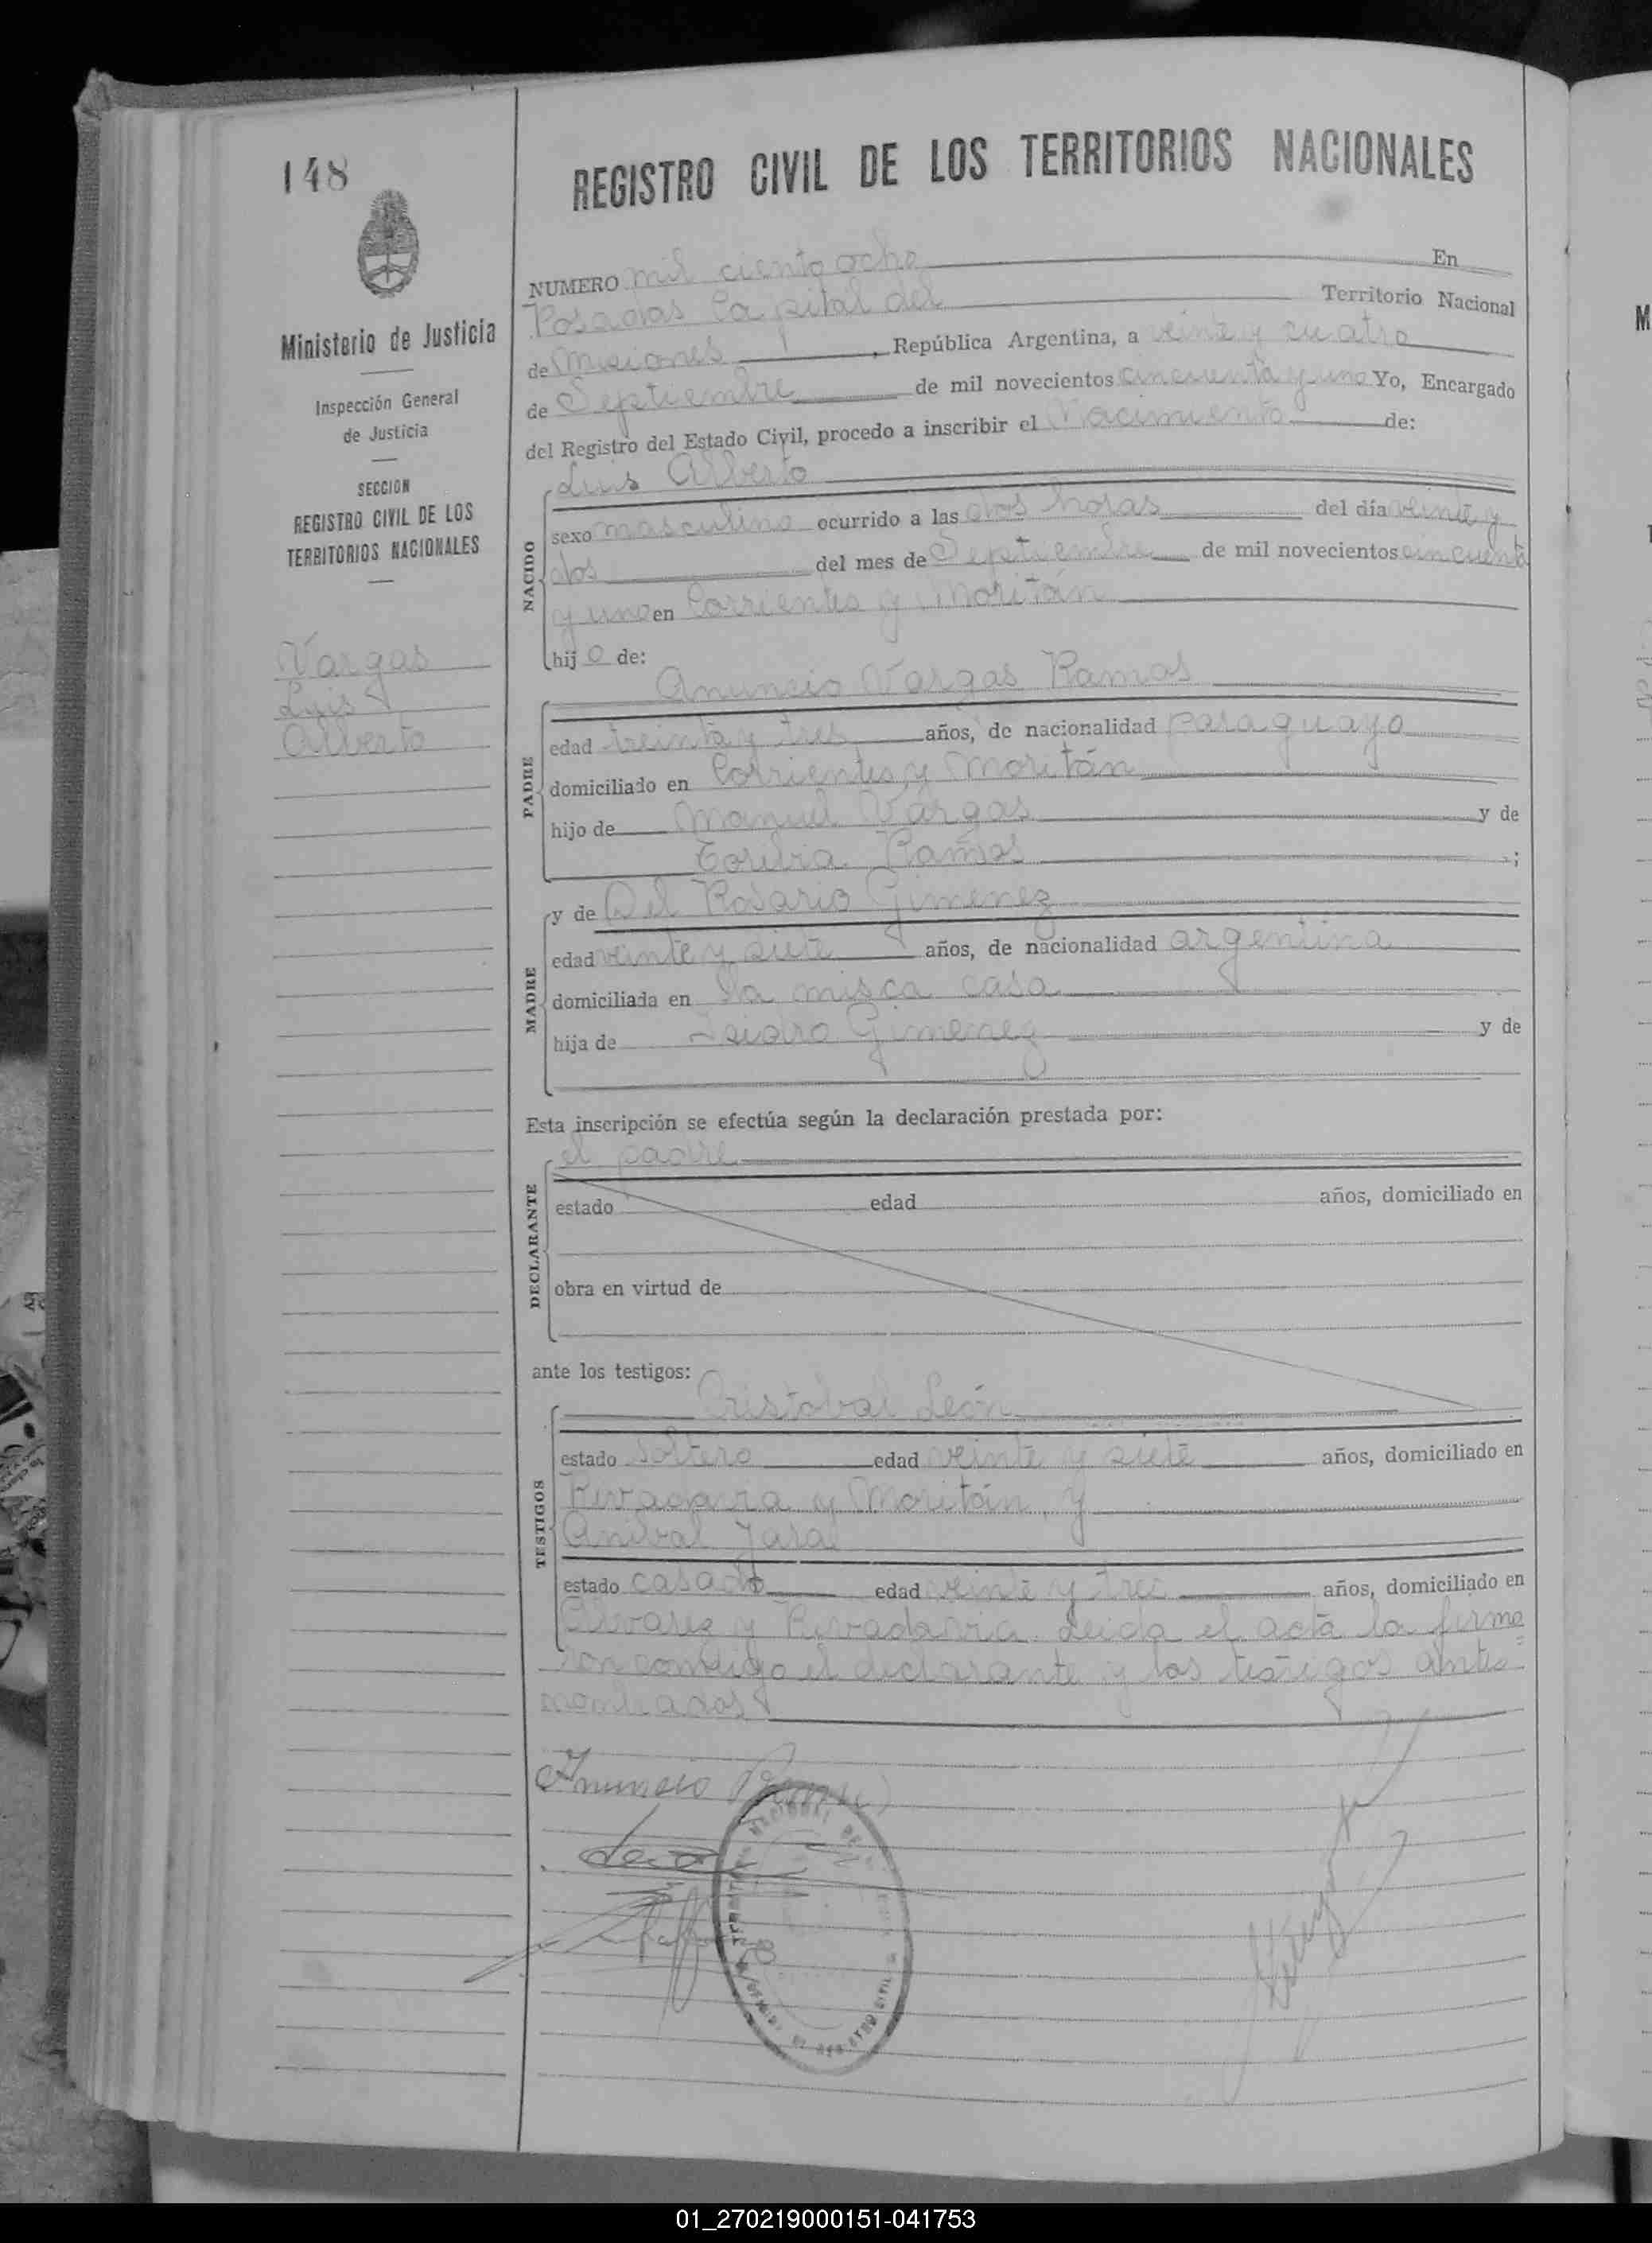 148
REGISTRO CIVIL DE LOS TERRITORIOS NACIONALES
Ministerio de Justicia
Inspección General
de Justicia
SECCION
REGISTRO CIVIL DE LOS
TERRITORIOS NACIONALES
Vargas
Luis
Alberto
NUMERO mil ciento ocho En
Posadas Capital del Territorio Nacional
de Misiones, República Argentina, a veinte y cuatro
de Septiembre de mil novecientos cincuenta y uno Yo, Encargado
del Registro del Estado Civil, procedo a inscribir el Nacimiento de:
NACIDO
Luis Alberto
sexo masculino ocurrido a las dos horas del día veinte y
dos del mes de Septiembre de mil novecientos cincuenta
y uno en Corrientes y Moritán
hijo de:
PADRE
Anuncio Vargas Ramos
edad treinta y tres años, de nacionalidad paraguayo
domiciliado en Corrientes y Moritán
hijo de Manuel Vargas y de
Toribia Ramos ;
MADRE
y de Del Rosario Gimenez
edad veinte y siete años, de nacionalidad argentina
domiciliada en la misca casa
hija de Isidro Gimenez y de
Esta inscripción se efectúa según la declaración prestada por:
DECLARANTE
el padre
estado edad años, domiciliado en
obra en virtud de
ante los testigos:
TESTIGOS
Cristobal León
estado soltero edad veinte y siete años, domiciliado en
Rivadavia y Moritán y
Anibal Jara
estado casado edad veinte y tres años, domiciliado en
Alvarez y Rivadavia. Leida el acta la firma
ron conmigo el declarante y los testigos antes
nombrados
Anuncio
León
01_270219000151-041753